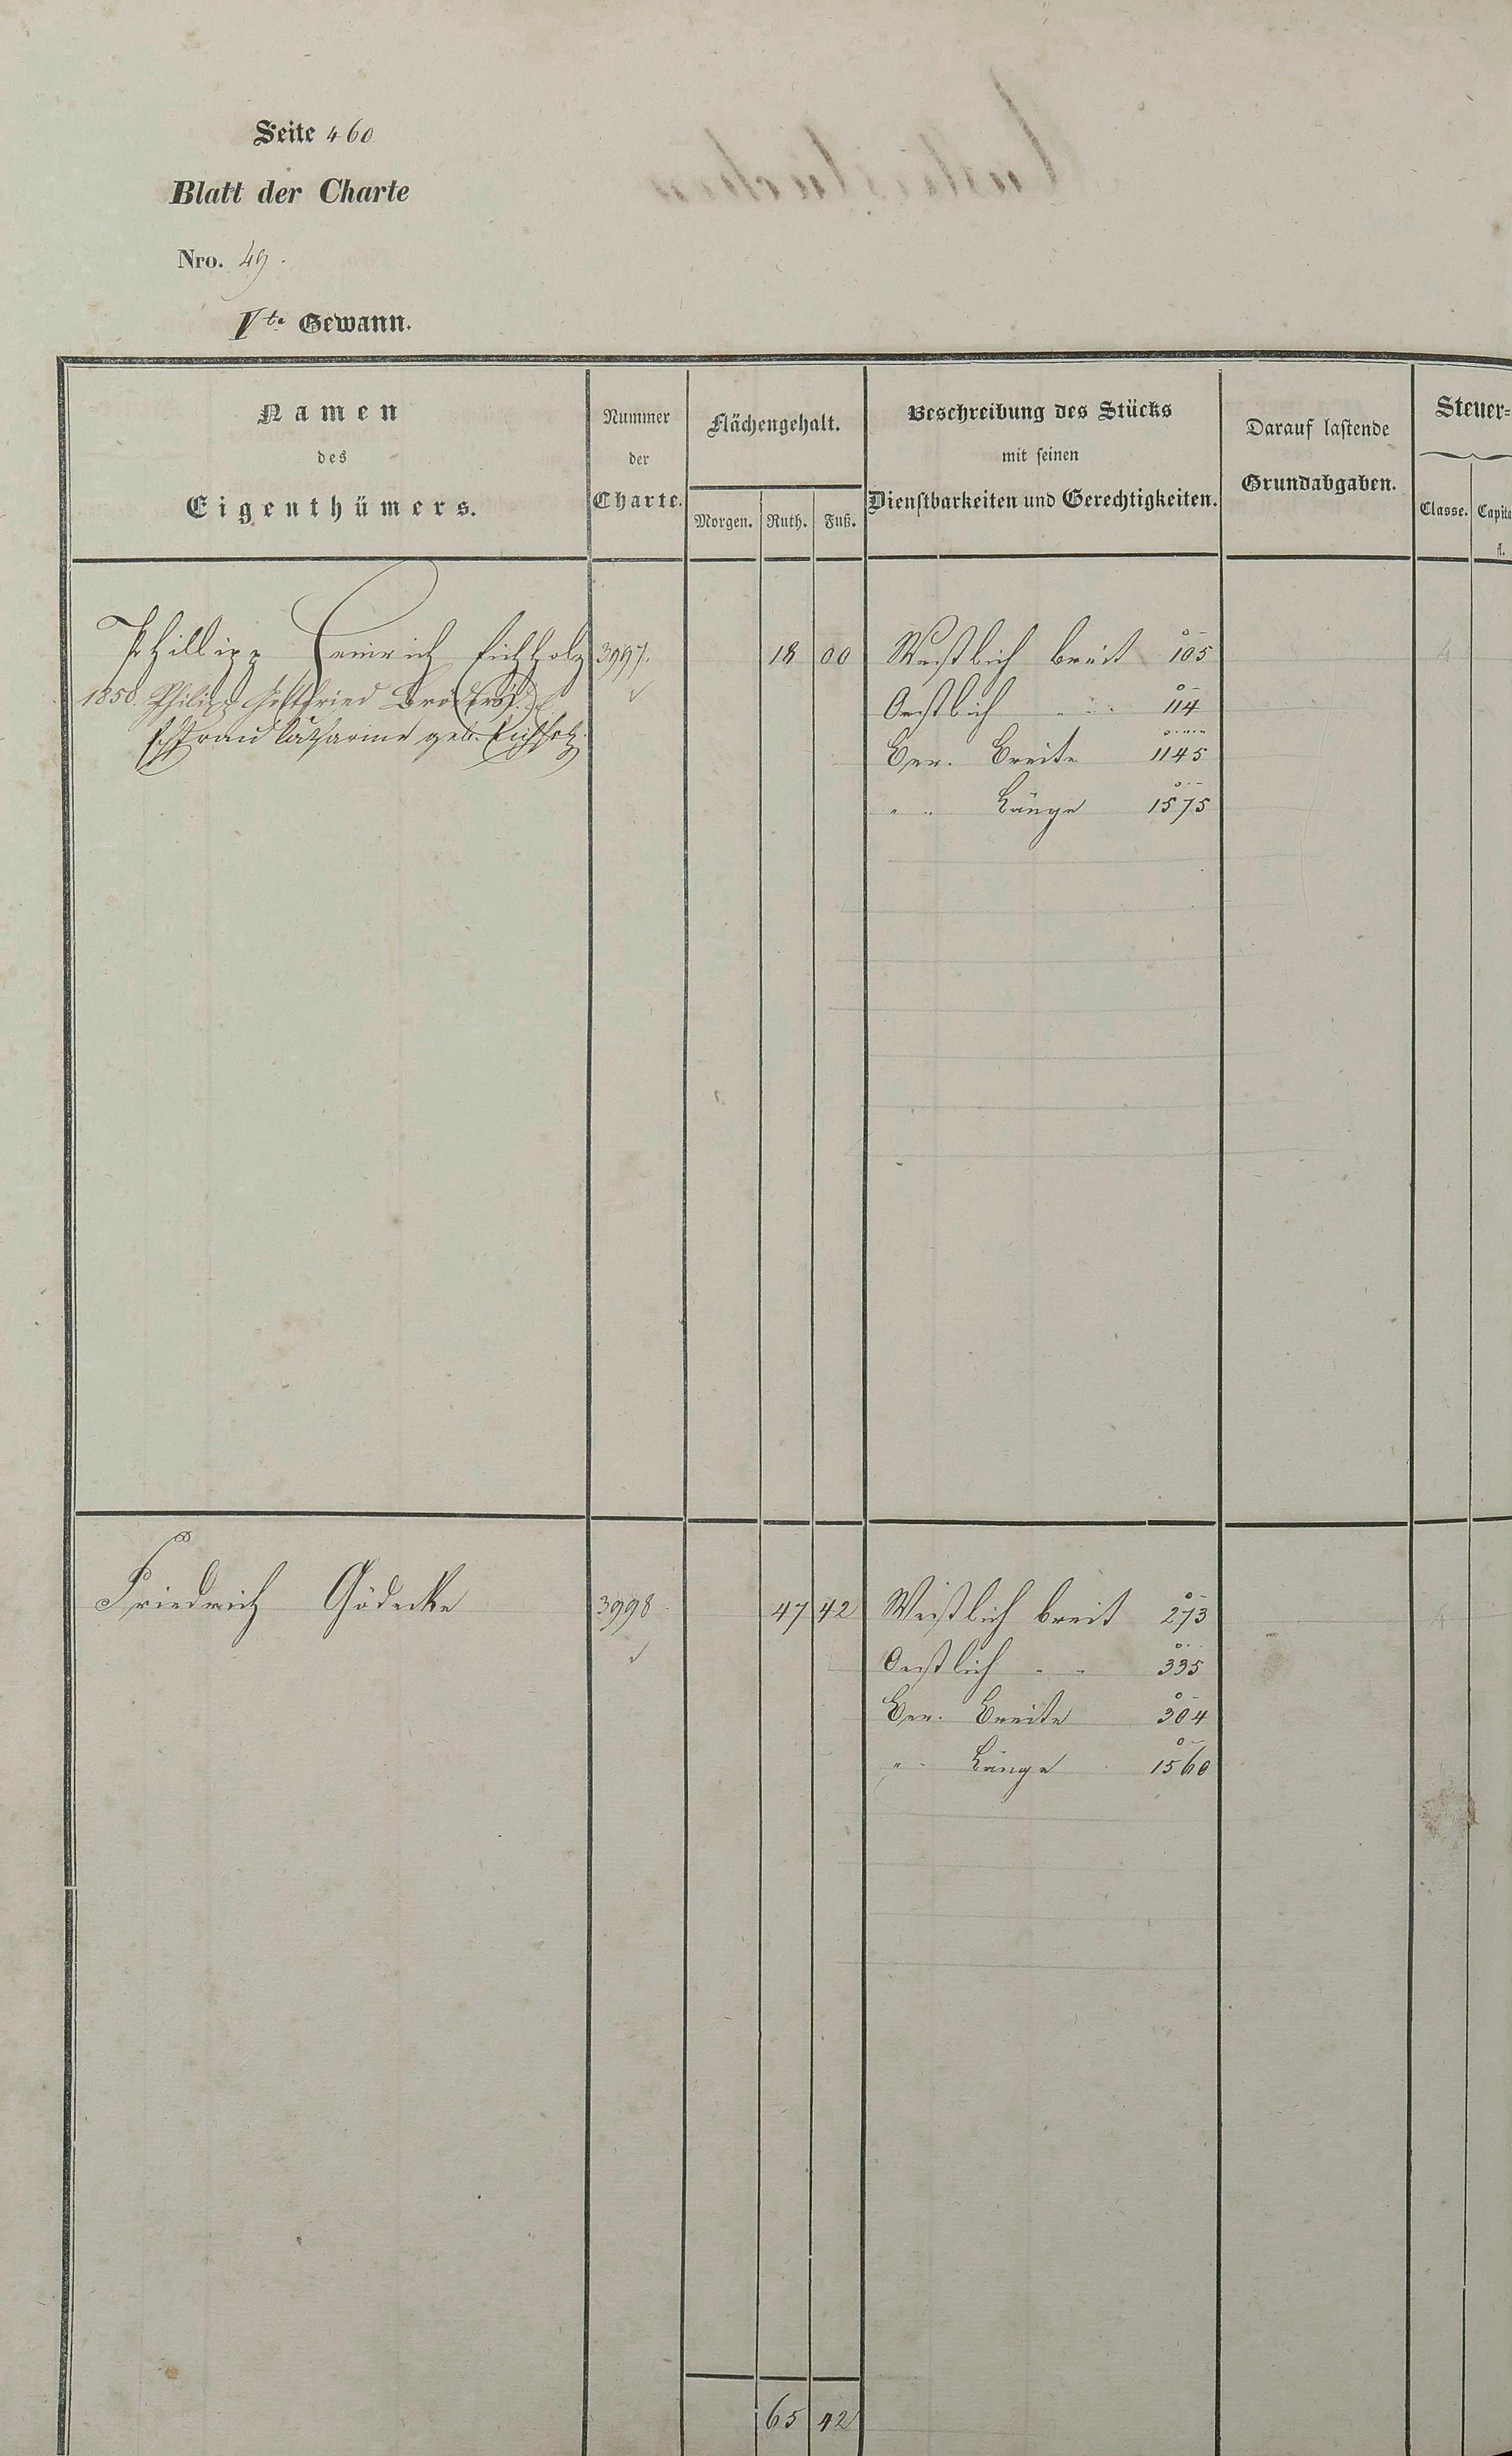 Seite 460
Blatt der Charte
Nro. 49.
Vte Gewann.
Namen
des
Eigenthümers.
Nummer
der
Charte.
Flächengehalt.
Morgen. Ruth. Fuß.
Beschreibung des Stücks
mit seinen
Dienstbarkeiten und Gerechtigkeiten.
Darauf lastende
Grundabgaben.
Steuer=
Classe. Capita
fl.
Phillipp Heinrich Eichholz 3997. 18 00 Westlich breit 105
1850. Philipp Gottfried
Oestlich " " 114
Ehefrau Catharine geb. Eichholz.
Ver. Breite 1145
" " Länge 1575
Friedrich Gödecke 3998 47 42 Westlich breit 273
Oestlich " " 335
Ver. Breite 304
" " Länge 1560
65 42